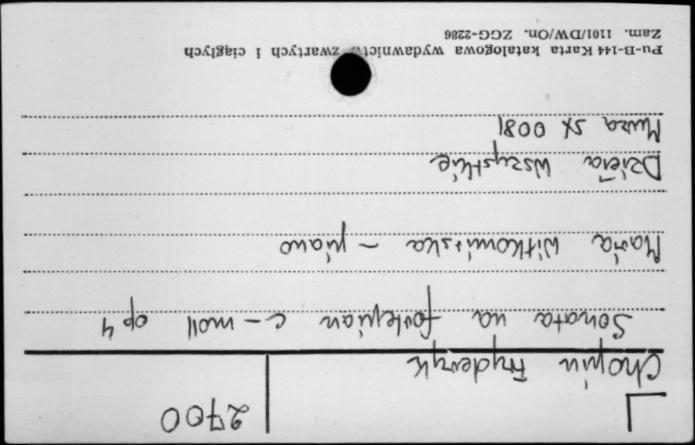 L 2700
Chopin Fryderyk
Sonata na fortepian c-moll op 4
Maria Wiłkomirska - piano
Dzieła wszystkie
Muza SX 0081
Pu-B-144 Karta katalogowa wydawnictw zwartych i ciągłych
Zam. 1101/DW/On. ZGG-2286